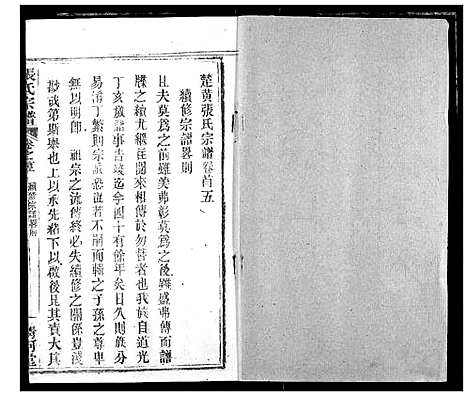 楚黄張氏宗譜卷首五
續修宗譜畧則
且夫莫為之前雖美弗彰莫為之後雖盛弗傳而譜
牒之續尤繼往開來相傳於勿替者也我族自道光
丁亥放譜事告竣迄今四十有餘年矣日久則族分
易淆丁繁則宗派恐㒺若不嗣而輯之子孫之尊卑
無以明即 祖宗之流傳終必失續修之關係豈淺
尠或第斯舉也上以承先緒下以啟後昆其責大其
張氏宗譜 卷之首 續修宗譜畧則